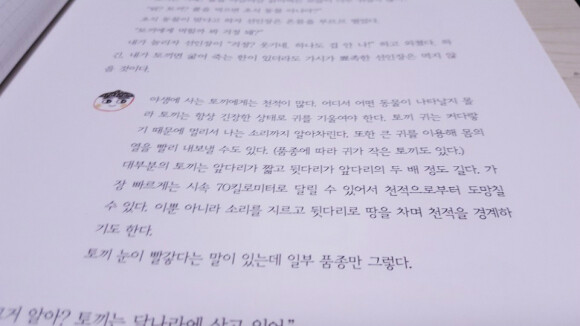 "토끼에게 먹힐까 봐 걱정 돼?"
내가 놀리자 선인장이 "걱정? 웃기네. 하나도 겁 안 나!" 하고 하했다. 하
긴, 내가 토끼면 굶어 죽는 한이 있더라도 가시가 뾰족한 선인장은 먹지 않
을 것이다.
야생에 사는 토끼에게는 천적이 많다. 어디서 어떤 동물이 나타날지 몰
라 토끼는 항상 긴장한 상태로 귀를 기울여야 한다. 토끼 귀는 커다랗
기 때문에 멀리서 나는 소리까지 알아차린다. 또한 큰 귀를 이용해 몸의
열을 빨리 내보낼 수도 있다. (품종에 따라 귀가 작은 토끼도 있다.)
대부분의 토끼는 앞다리가 짧고 뒷다리가 앞다리의 두 배 정도 길다. 가
장 빠르게는 시속 70킬로미터로 달릴 수 있어서 천적으로부터 도망칠
수 있다. 이뿐 아니라 소리를 지르고 뒷다리로 땅을 차며 천적을 경계하
기도 한다.
토끼 눈이 빨갛다는 말이 있는데 일부 품종만 그렇다.
알아? 토끼는 달나라에 살고 있어"